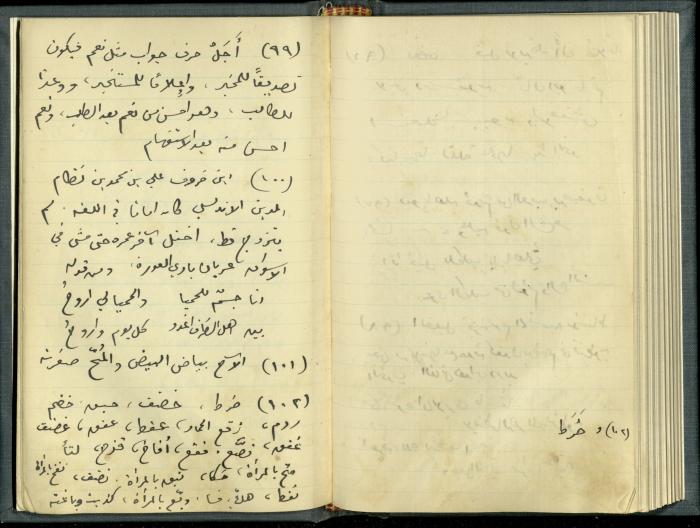 (٩٩) أَجَلْ حرف جواب مثل نعم فيكون
تصديقاً للمخبر، وإعلاماً للمستخبر، ووعداً
للطالب، وهو أحسن من نعم بعد الطلب، ونعم
احسن منه بعد الاستفهام
(١٠٠) ابن خروف علي بن محمد بن نظام
الدين الاندلسي كان اماما في اللغة. لم
يتزوج قط، اختل آخر عمره حتى مشى في
الاسواق عريان بادي العورة. ومن قوله
انا جسم للحميا والحميا لي روح
بين اهل الظرف اغدو كل يوم واروح
(١٠١) الآح بياض البيض والمُحّ صفرته
(١٠٢) ضرط، خضف، حبق، خضم
ردم، زقع الحمار، عفط، عفق، غضف
فقع، أفاخ، قزح
متح بالمرأة، نضف، نفخ بالمرأة
نفط، كذبت وباغته
(١٠٢) و خَرَط